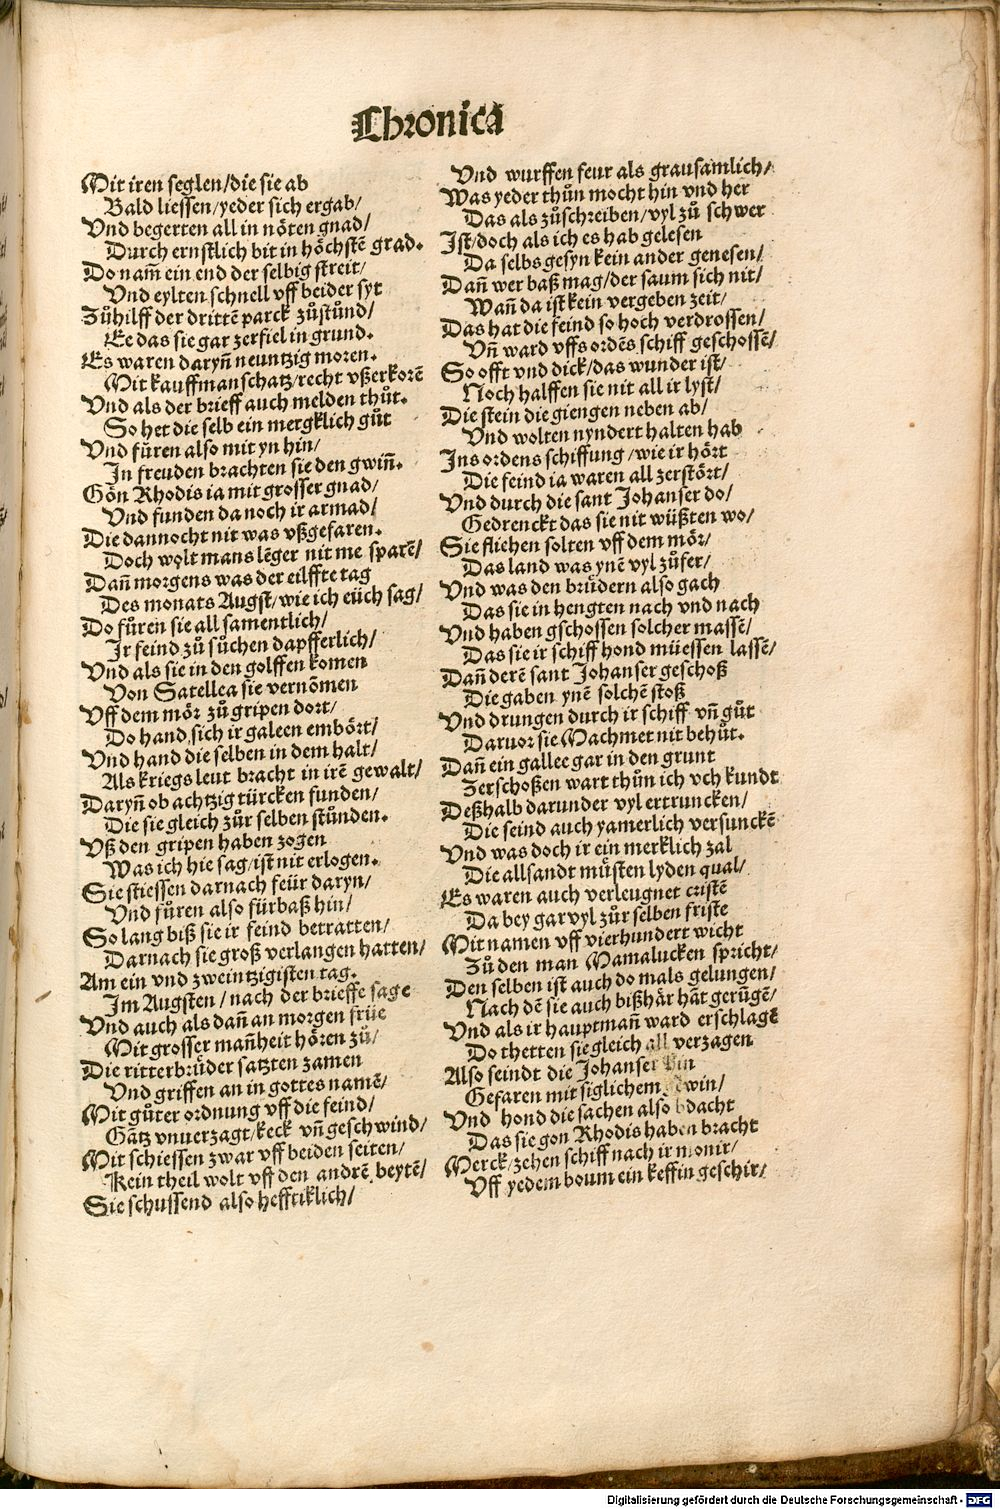 Chronica
Mit iren seglen/die sie ab
Bald liessen/yeder sich ergab/
Vnd begerten all in nöten gnad/
Durch ernstlich bit in höchstẽ grad.
Do nam̃ ein end der selbig streit/
Vnd eylten schnell vff beider syt
Zůhilff der drittẽ parck zůstůnd/
Ee das sie gar zerfiel in grund.
Es waren daryñ neuntzig moren.
Mit kauffmanschatz/recht vßerkorẽ
Vnd als der brieff auch melden thůt.
So het die selb ein mergklich gůt
Vnd fůren also mit yn hin/
In freuden brachten sie den gwiñ.
Gön Rhodis ia mit grosser gnad/
Vnd funden da noch ir armad/
Die dannocht nit was vßgefaren.
Doch wolt mans lẽger nit me sparẽ/
Dañ morgens was der eilffte tag
Des monats Augst/wie ich eüch sag/
Do fůren sie all samentlich/
Ir feind zů sůchen dapfferlich/
Vnd als sie in den golffen komen
Von Satellea sie vernõmen
Vff dem mör zů gripen dort/
Do hand sich ir galeen embört/
Vnd hand die selben in dem halt/
Als kriegs leut bracht in irẽ gewalt/
Daryñ ob achtzig türcken funden/
Die sie gleich zůr selben stůnden.
Vß den gripen haben zogen
Was ich hie sag/ist nit erlogen.
Sie stiessen darnach feür daryn/
Vnd fůren also fürbaß hin/
So lang biß sie ir feind betratten/
Darnach sie groß verlangen hatten/
Am ein vnd zweintzigisten tag.
Im Augsten/nach der brieffe sage
Vnd auch als dañ an morgen früe
Mit grosser mañheit hören zů/
Die ritterbrüder satzten zamen
Vnd griffen an in gottes namẽ/
Mit gůter ordnung vff die feind/
Gãtz vnuerzagt/keck vñ geschwind/
Mit schiessen zwar vff beiden seiten/
Kein theil wolt vff den andrẽ beytẽ/
Sie schussend also hefftiklich/
Vnd wurffen feur als grausamlich/
Was yeder thůn mocht hin vnd her
Das als zůschreiben/vyl zů schwer
Ist/doch als ich es hab gelesen
Da selbs gesyn kein ander genesen/
Dañ wer baß mag/der saum sich nit/
Wañ da ist kein vergeben zeit/
Das hat die feind so hoch verdrossen/
Vñ ward vffs ordẽs schiff geschossẽ/
So offt vnd dick/das wunder ist/
Noch halffen sie nit all ir lyst/
Die stein die giengen neben ab/
Vnd wolten nyndert halten hab
Ins ordens schiffung/wie ir hört
Die feind ia waren all zerstört/
Vnd durch die sant Johanser do/
Gedrenckt das sie nit wüßten wo/
Sie fliehen solten vff dem mör/
Das land was ynẽ vyl zůfer/
Vnd was den brüdern also gach
Das sie in hengten nach vnd nach
Vnd haben gschossen solcher massẽ/
Das sie ir schiff hond müessen lassẽ/
Dañ derẽ sant Johanser geschoß
Die gaben ynẽ solchẽ stoß
Vnd drungen durch ir schiff vñ gůt
Daruor sie Machmet nit behůt.
Dañ ein gallee gar in den grunt
Zerschoßen wart thůn ich vch kundt
Deßhalb darunder vyl ertruncken/
Die seind auch yamerlich versunckẽ
Vnd was doch ir ein merklich zal
Die allsandt müsten lyden qual/
Es waren auch verleugnet cristẽ
Da bey gar vyl zůr selben friste
Mit namen vff vierhundert wicht
Zů den man Mamalucken spricht/
Den selben ist auch do mals gelungen/
Nach dẽ sie auch bißhär hãt gerũgẽ/
Vnd als ir hauptmañ ward erschlagẽ
Do thetten sie gleich all verzagen
Also seindt die Johanser hin
Gefaren mit siglichem gewin/
Vnd hond die sachen also bdacht
Das sie gon Rhodis haben bracht
Merck/zehen schiff nach ir monir/
Vff yedem boum ein keffin geschir/
Digitalisierung gefördert durch die Deutsche Forschungsgemeinschaft - DFG